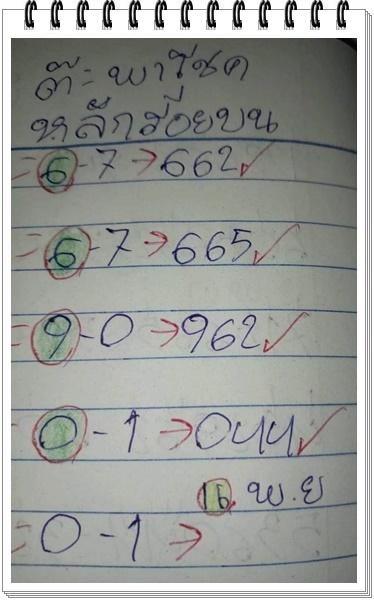 ต๊ะ พาโชค
หลักร้อยบน
= 6-7 → 662 ✓
= 6-7 → 665 ✓
= 9-0 → 962 ✓
= 0-1 → 044 ✓
16. พ.ย
= 0-1 →